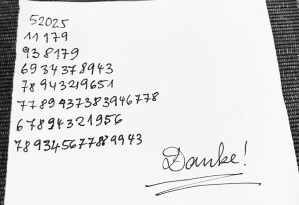 52025
11179
938179
6934378943
78943219651
7789437383946778
67894321956
789345677889943
Danke!